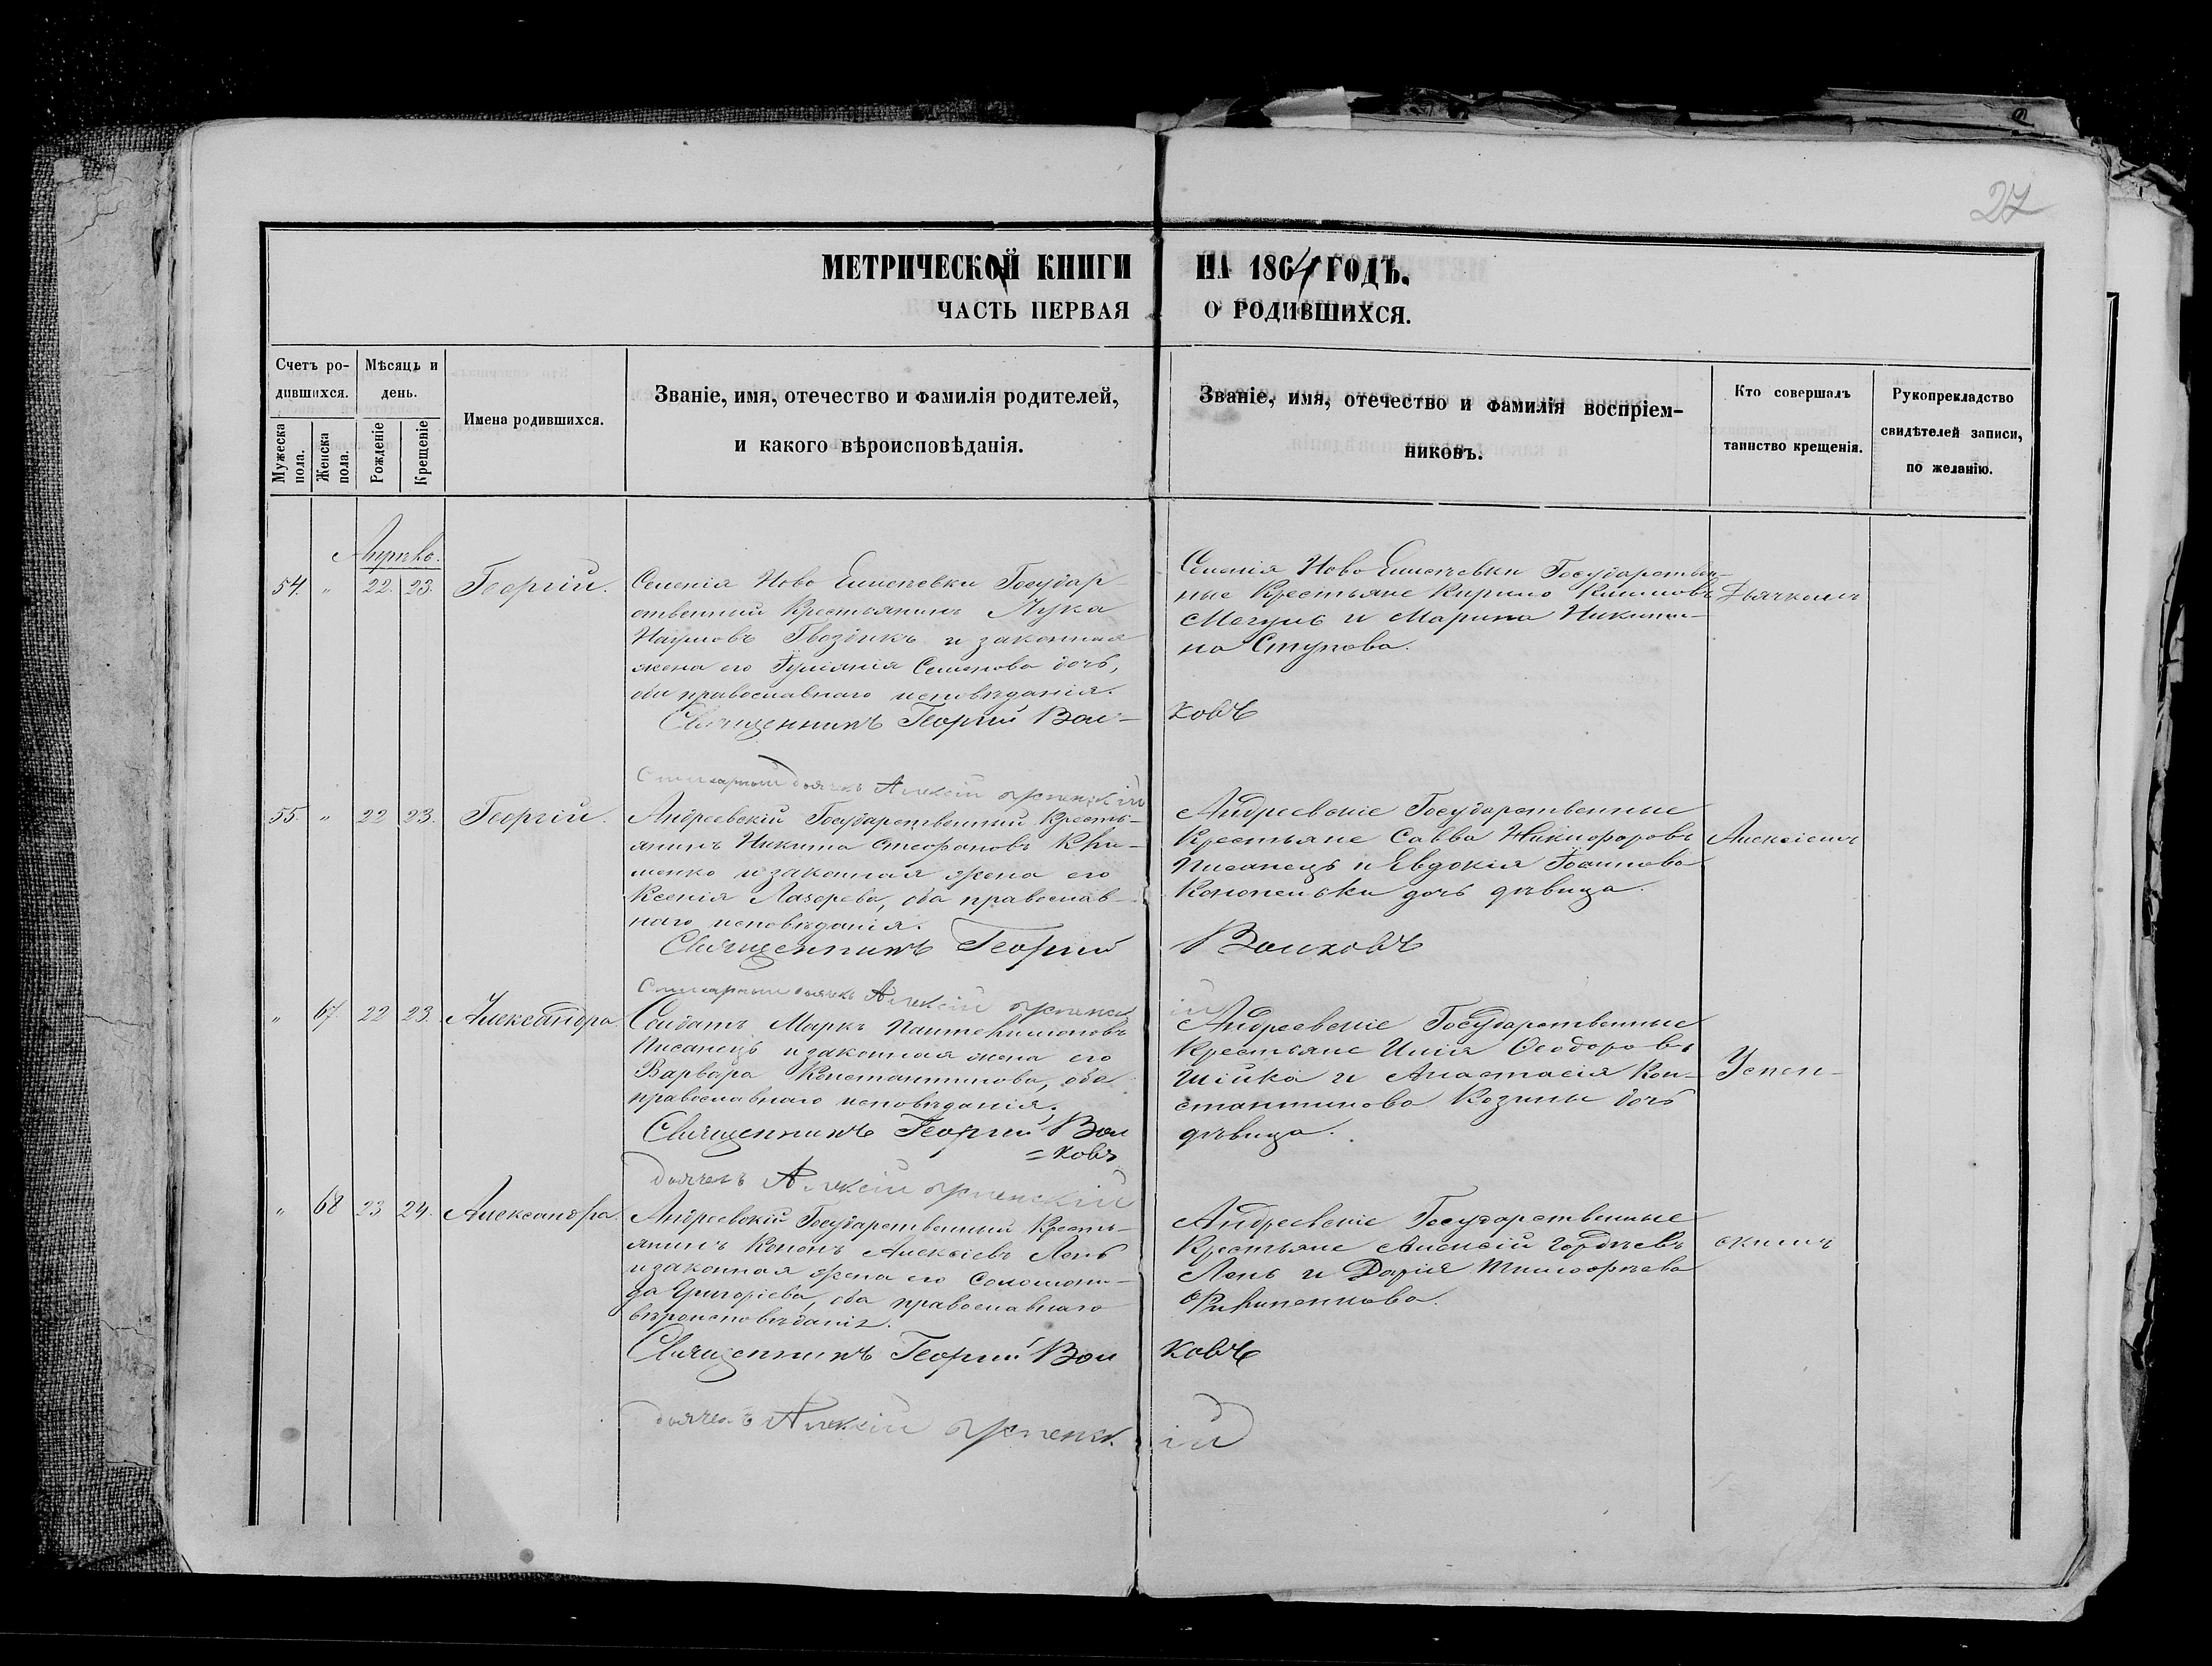 27
МЕТРИЧЕСКОЙ КНИГИ НА 1864 ГОДЪ.
ЧАСТЬ ПЕРВАЯ О РОДИВШИХСЯ.
Счетъ ро-
дившихся.
Мужеска
пола.
Женска
пола.
Мѣсяць и
день.
Рожденіе
Крещеніе
Имена родившихся.
Званіе, имя, отечество и фамилія родителей,
и какого вѣроисповѣданія.
Званіе, имя, отечество и фамилія воспріем-
никовъ.
Кто совершалъ
таинство крещенія.
Рукоприкладство
свидѣтелей записи,
по желанію.
54. " 22. 23. Георгій.
Селенія Ново Государ
ственный Крестьянинъ Лука
Наумовъ Гвоздикъ и законная
жена его Семенова дочь,
оба православнаго исповѣданія.
Священникъ Георгій Вол-
ковъ
Селенія Ново Государствен-
ные Крестьяне Кирило
и Марина Никити-
на Ступова.
Дьячкомъ
дьячекъ Алексій Успенскій
55. " 22 23. Георгій.
Андреевскій Государственный Кресть-
янинъ Никита Стефановъ Кли-
менко и законная жена его
Ксенія Лазарева, оба православ-
наго исповѣданія.
Священникъ Георгій Волховъ
Андреевскіе Государственные
Крестьяне Савва Никифоровъ
Писанецъ и Евдокія
дочь дѣвица.
Алексіемъ
дьячекъ Алексій Успенскій
" 67. 22 23. Александра.
Солдатъ Маркъ Пантелимоновъ
Писанецъ и законная жена его
Варвара Константинова, оба
православнаго исповѣданія.
Священникъ Георгій Вол
=ковъ
Андреевскіе Государственные
Крестьяне Илія Феодоровъ
Шійка и Анастасія Кон-
стантинова Козины дочь
дѣвица.
Успен-
дьячекъ Алексій Успенскій
" 68 23 24. Александра.
Андреевскій Государственный Кресть-
янинъ Кононъ Алексіевъ Лень
и законная жена его Соломони-
да Григоріева, оба православнаго
вѣроисповѣданія.
Священникъ Георгій Вол
ковъ
Андреевскіе Государственные
Крестьяне Алексій Гордѣевъ
Лень и Дарія Тимофѣева
скимъ
дьячекъ Алексій Успенскій